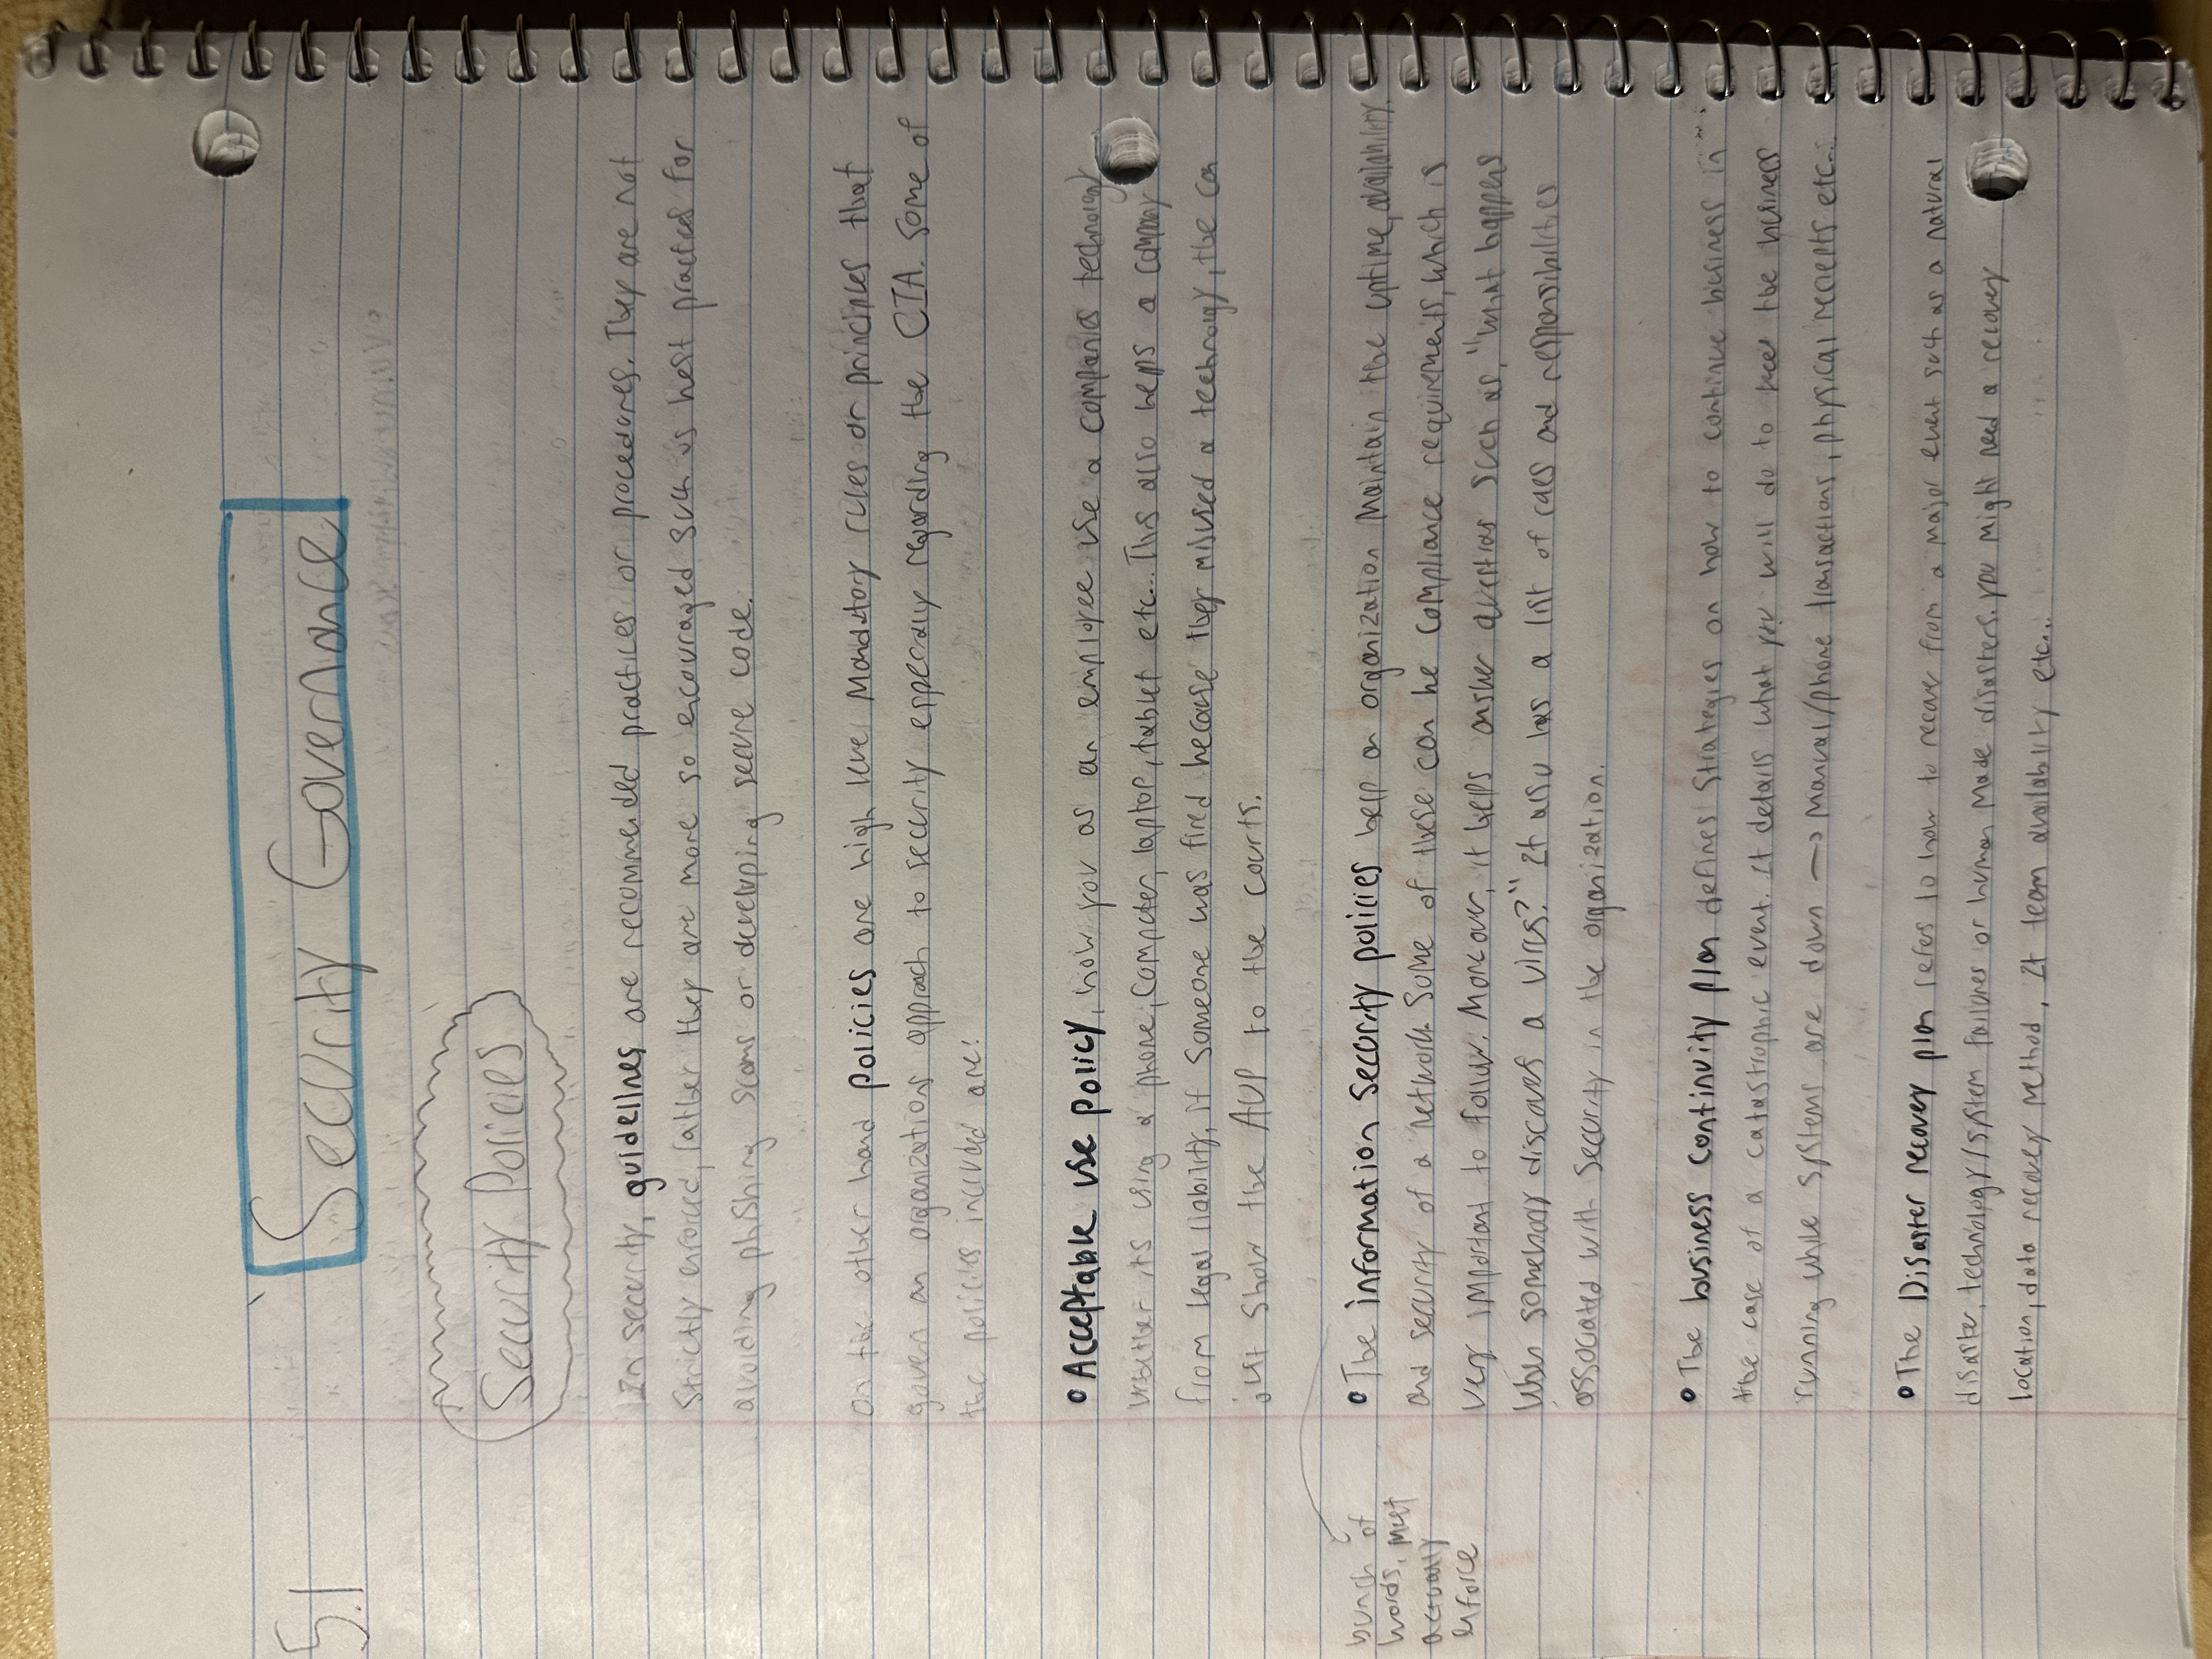 5.1
Security Governance
Security Policies
In security, guidelines are recommended practices or procedures. They are not
strictly enforced, rather they are more so encouraged such as best practices for
avoiding phishing scams or developing secure code.
On the other hand policies are high level mandatory rules or principles that
govern an organizations approach to security especially regarding the CIA. Some of
the policies included are:
• Acceptable use policy, how you as an employee use a companies technology
whether its using a phone, computer, laptop, tablet etc... This also helps a company
from legal liability, if someone was fired because they misused a technology, the can
just show the AUP to the courts.
bunch of
words, must
actually
enforce
• The information security policies help an organization maintain the uptime, availability,
and security of a network. Some of these can be compliance requirements, which is
very important to follow. Moreover, it helps answer questions such as, "what happens
when somebody discovers a virus?" It also has a list of roles and responsibilities
associated with security in the organization.
• The business continuity plan defines strategies on how to continue business in
the case of a catastrophic event. It details what you will do to keep the business
running while systems are down → Manual/phone transactions, physical reciepts etc...
• The Disaster recovery plan refers to how to recover from a major event such as a natural
disaster, technology/system failures or human made disasters. you might need a recovery
location, data recovery method, It team availability etc...